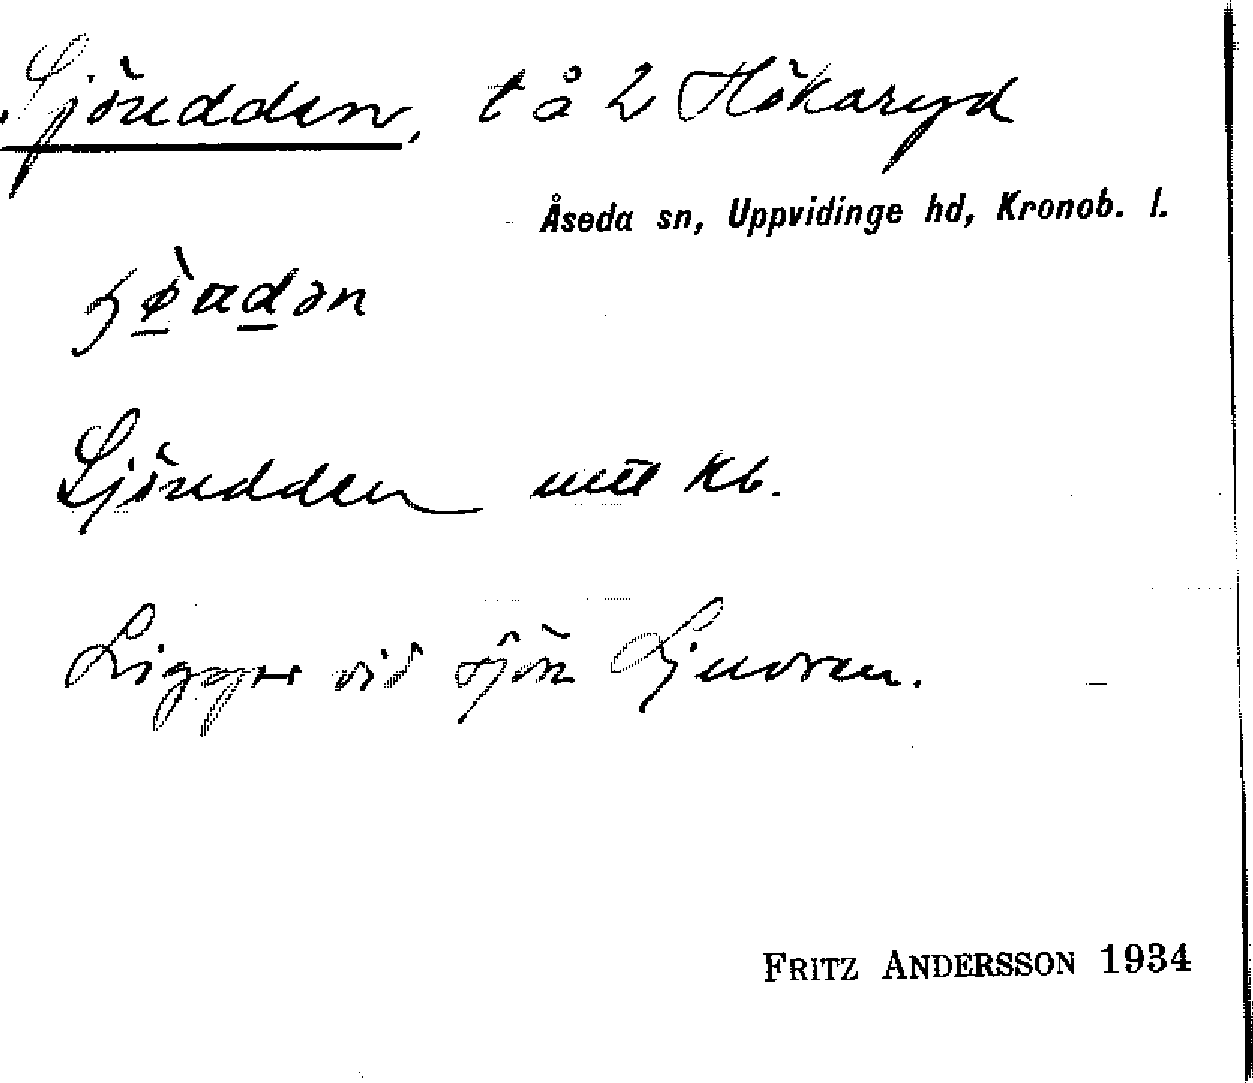 Sjöudden, t å 2 Hökaryd
Åseda sn, Uppvidinge hd, Kronob. l.
Sjöudden utt Kb.
Ligger vid sjön
FRITZ ANDERSSON 1934